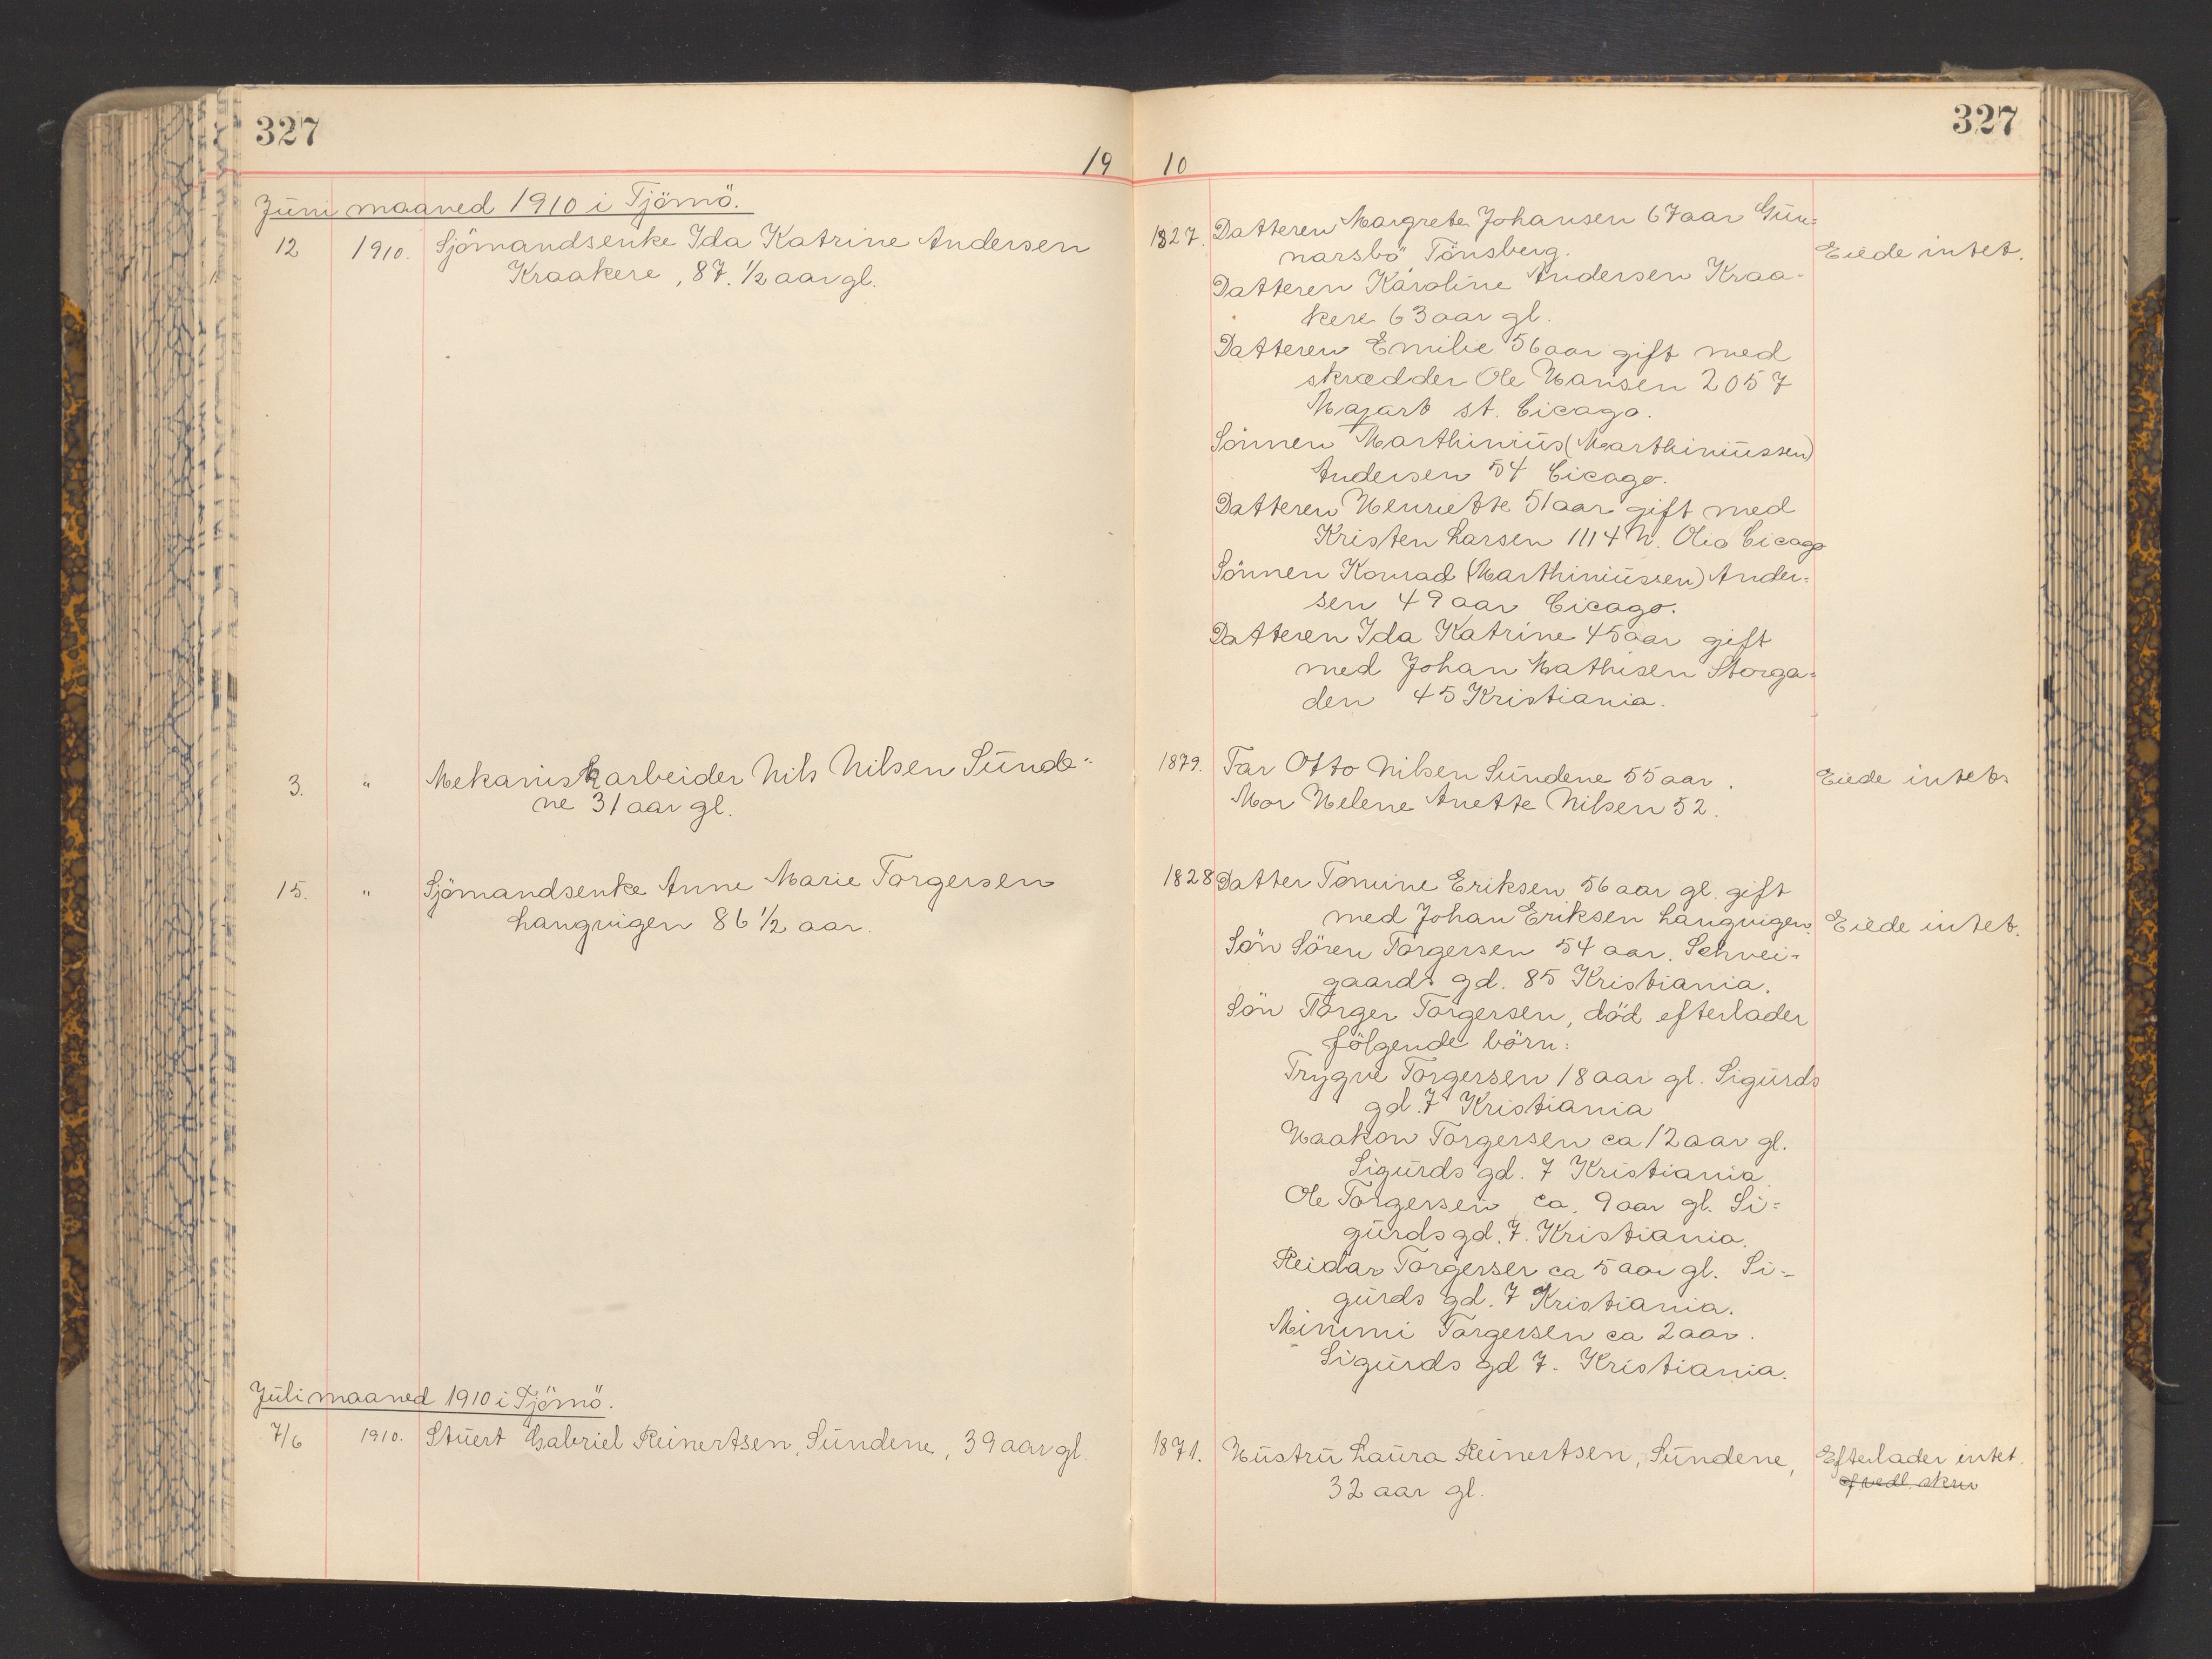 327
19
Juni maaned 1910 i Tjömö.
12 1910. Sjömandsenke Ida Katrine Andersen
Kraakere, 87. 1/2 aar gl.
3. " Mekaniskarbeider Nils Nilsen Sunde-
ne 31 aar gl.
15. " Sjömandsenke Anne Marie Torgersen
Langvigen 86 1/2 aar.
Juli maaned 1910 i Tjömö.
7/6 1910. Stuert Gabriel Reinertsen, Sundene, 39 aar gl.
327
10
1827. Datteren Margrete Johansen 67 aar Gun=
narsbö Tönsberg. Eiede intet.
Datteren Karoline Andersen Kraa-
kere 63 aar gl.
Datteren Emilie 56 aar gift med
skrædder Ole Hansen 2057
Mazart st. Cicago.
Sönnen Marthinius (Marthiniussen)
Andersen 54 Cicago.
Datteren Henriette 51 aar gift med
Kristen Larsen 1114 N. Olio Cicago
Sönnen Konrad (Marthiniussen) Ander=
sen 49 aar Cicago.
Datteren Ida Katrine 45 aar gift
med Johan Mathisen Storga=
den 45 Kristiania.
1879. Far Otto Nilsen Sundene 55 aar. Eiede intet.
Mor Helene Anette Nilsen 52.
1828 Datter Tomine Eriksen 56 aar gl. gift
med Johan Eriksen Langvigen. Eiede intet.
Sön Sören Torgersen 54 aar. Schwei-
gaards gd. 85 Kristiania.
Sön Torger Torgersen, död efterlader
fölgende börn:
Trygve Torgersen 18 aar gl. Sigurds
gd. 7 Kristiania
Haakon Torgersen ca 12 aar gl.
Sigurds gd. 7 Kristiania
Ole Torgersen ca. 9 aar gl. Si=
gurds gd. 7. Kristiania.
Reidar Torgersen ca 5 aar gl. Si-
gurds gd. 7 Kristiania.
Mimmi Torgersen ca 2 aar.
Sigurds gd 7. Kristiania.
1871. Hustru Laura Reinertsen, Sundene, Efterlader intet.
32 aar gl.